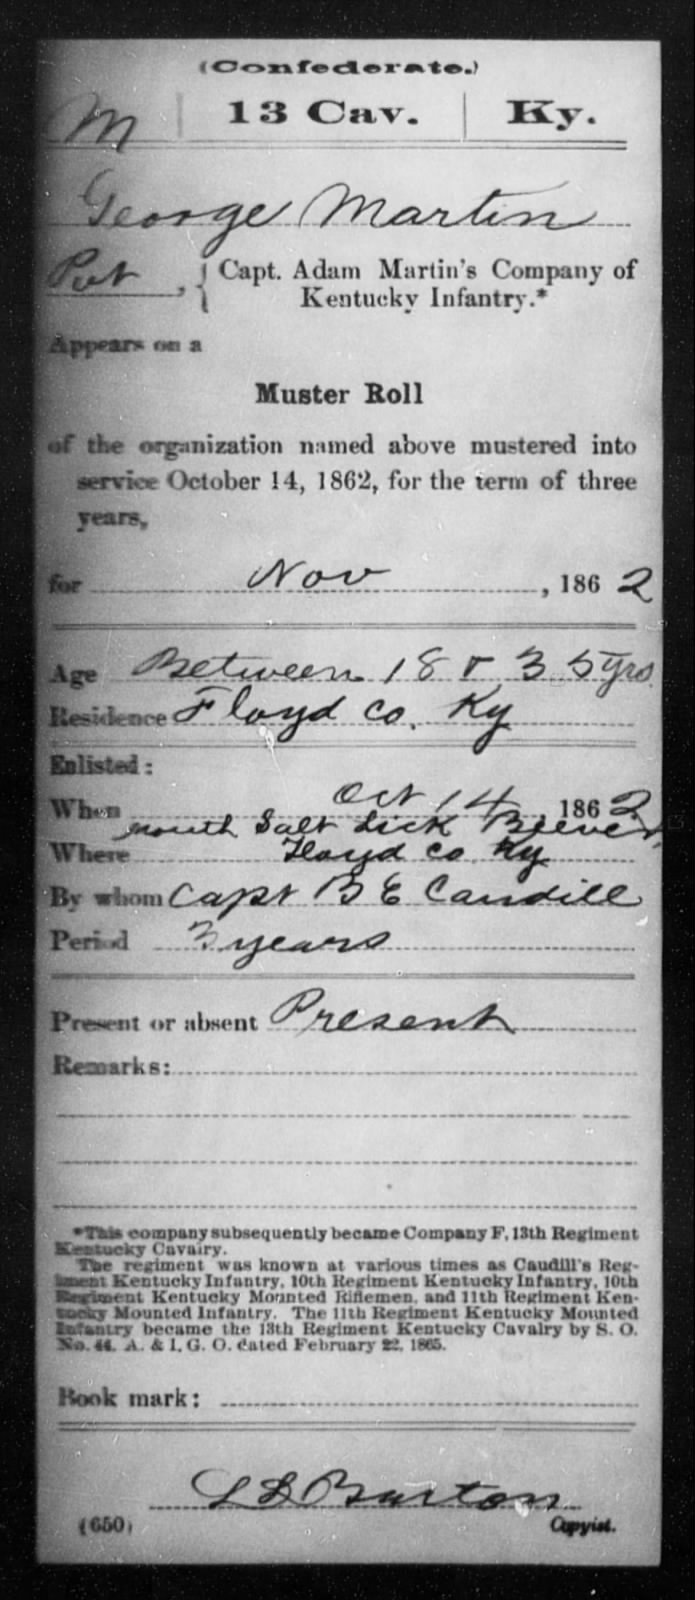 (Confederate.)
M | 13 Cav. | Ky.
George Martin
Pvt, { Capt. Adam Martin's Company of
Kentucky Infantry.*
Appears on a
Muster Roll
of the organization named above mustered into
service October 14, 1862, for the term of three
years,
for Nov, 186 2
Age Between 18 & 35 yrs
Residence Floyd co. Ky
Enlisted:
When Oct 14 186 2
mouth Salt Lick Beever,
Where Floyd co Ky
By whom Capt B E Caudill
Period 3 years
Present or absent Present
Remarks:
*This company subsequently became Company F, 13th Regiment
Kentucky Cavalry.
The regiment was known at various times as Caudill's Reg-
iment Kentucky Infantry, 10th Regiment Kentucky Infantry, 10th
Regiment Kentucky Mounted Riflemen, and 11th Regiment Ken-
tucky Mounted Infantry. The 11th Regiment Kentucky Mounted
Infantry became the 13th Regiment Kentucky Cavalry by S. O.
No. 44, A. & I. G. O. dated February 22, 1865.
Book mark:
L S Burton
(650) Copyist.